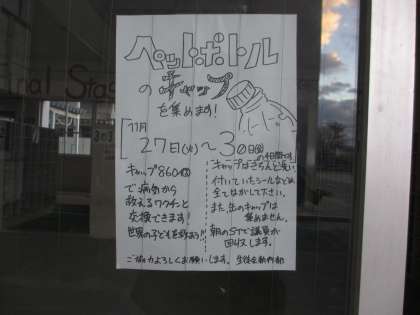 ペットボトル
の キャップ
を集めます!
11月
27日(火)〜30日(金)
の4日間です。
キャップ860個
で病気から
救えるワクチンと
交換できます!
世界の子どもを救おう!!
・キャップはきちんと洗い、
付いているシールなどは
全てはがして下さい。
また、缶のキャップは
集めません。
朝のSTで議員が
回収します。
ご協力よろしくお願いします。 生徒会執行部
nal Sta
303